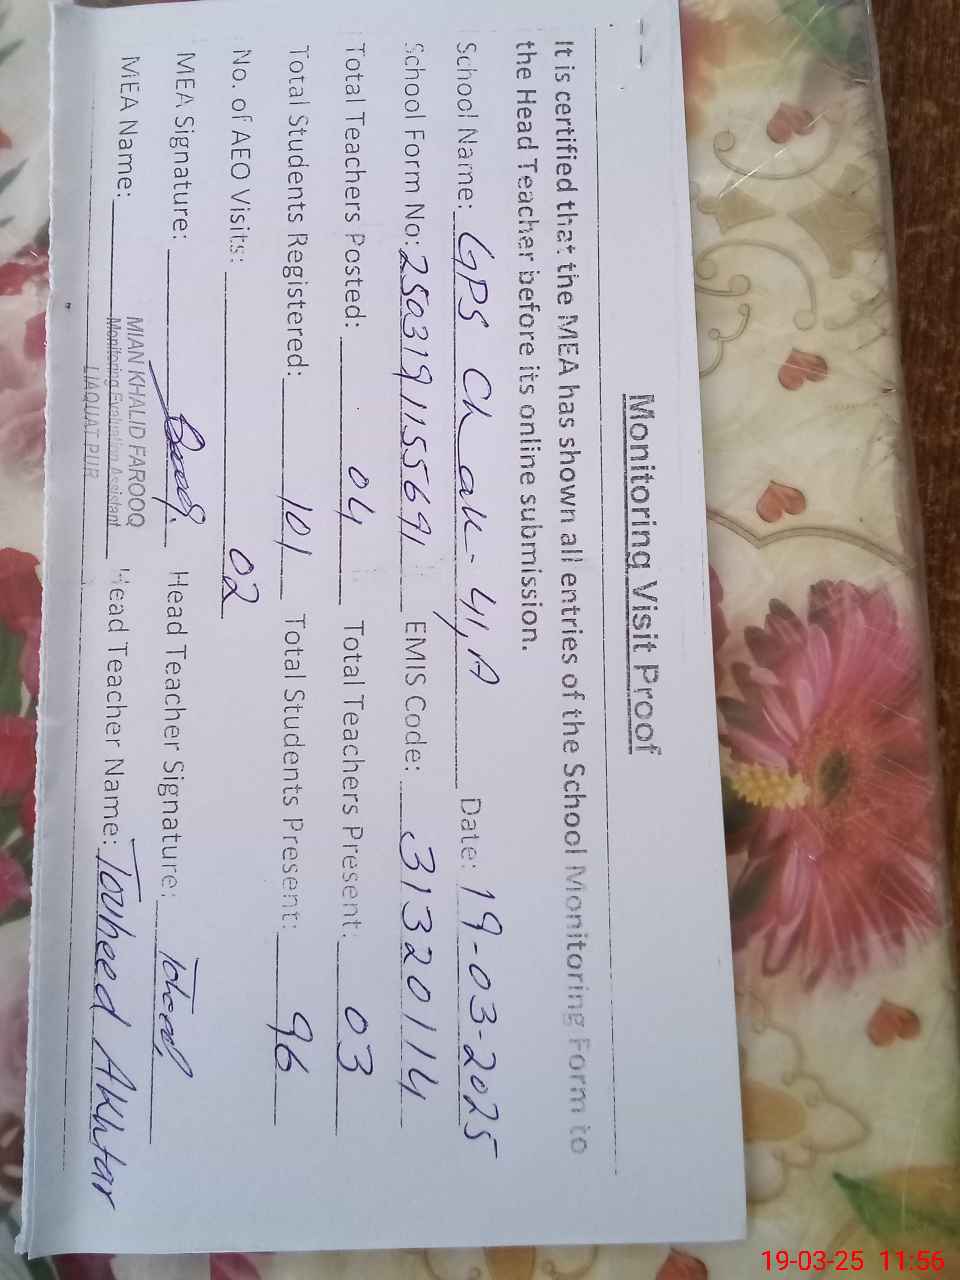 Monitoring Visit Proof
It is certified that the MEA has shown all entries of the School Monitoring Form to
the Head Teacher before its online submission.
School Name: GPS Chak-41,A Date: 19-03-2025
School Form No: 2503191155691 EMIS Code: 31320114
Total Teachers Posted: 04 Total Teachers Present: 03
Total Students Registered: 101 Total Students Present: 96
No. of AEO Visits: 02
MEA Signature: Head Teacher Signature:
MEA Name: MIAN KHALID FAROOQ Head Teacher Name: Touheed Akhtar
Monitoring Evaluation Assistant
LIAQUAT PUR
19-03-25 11:56